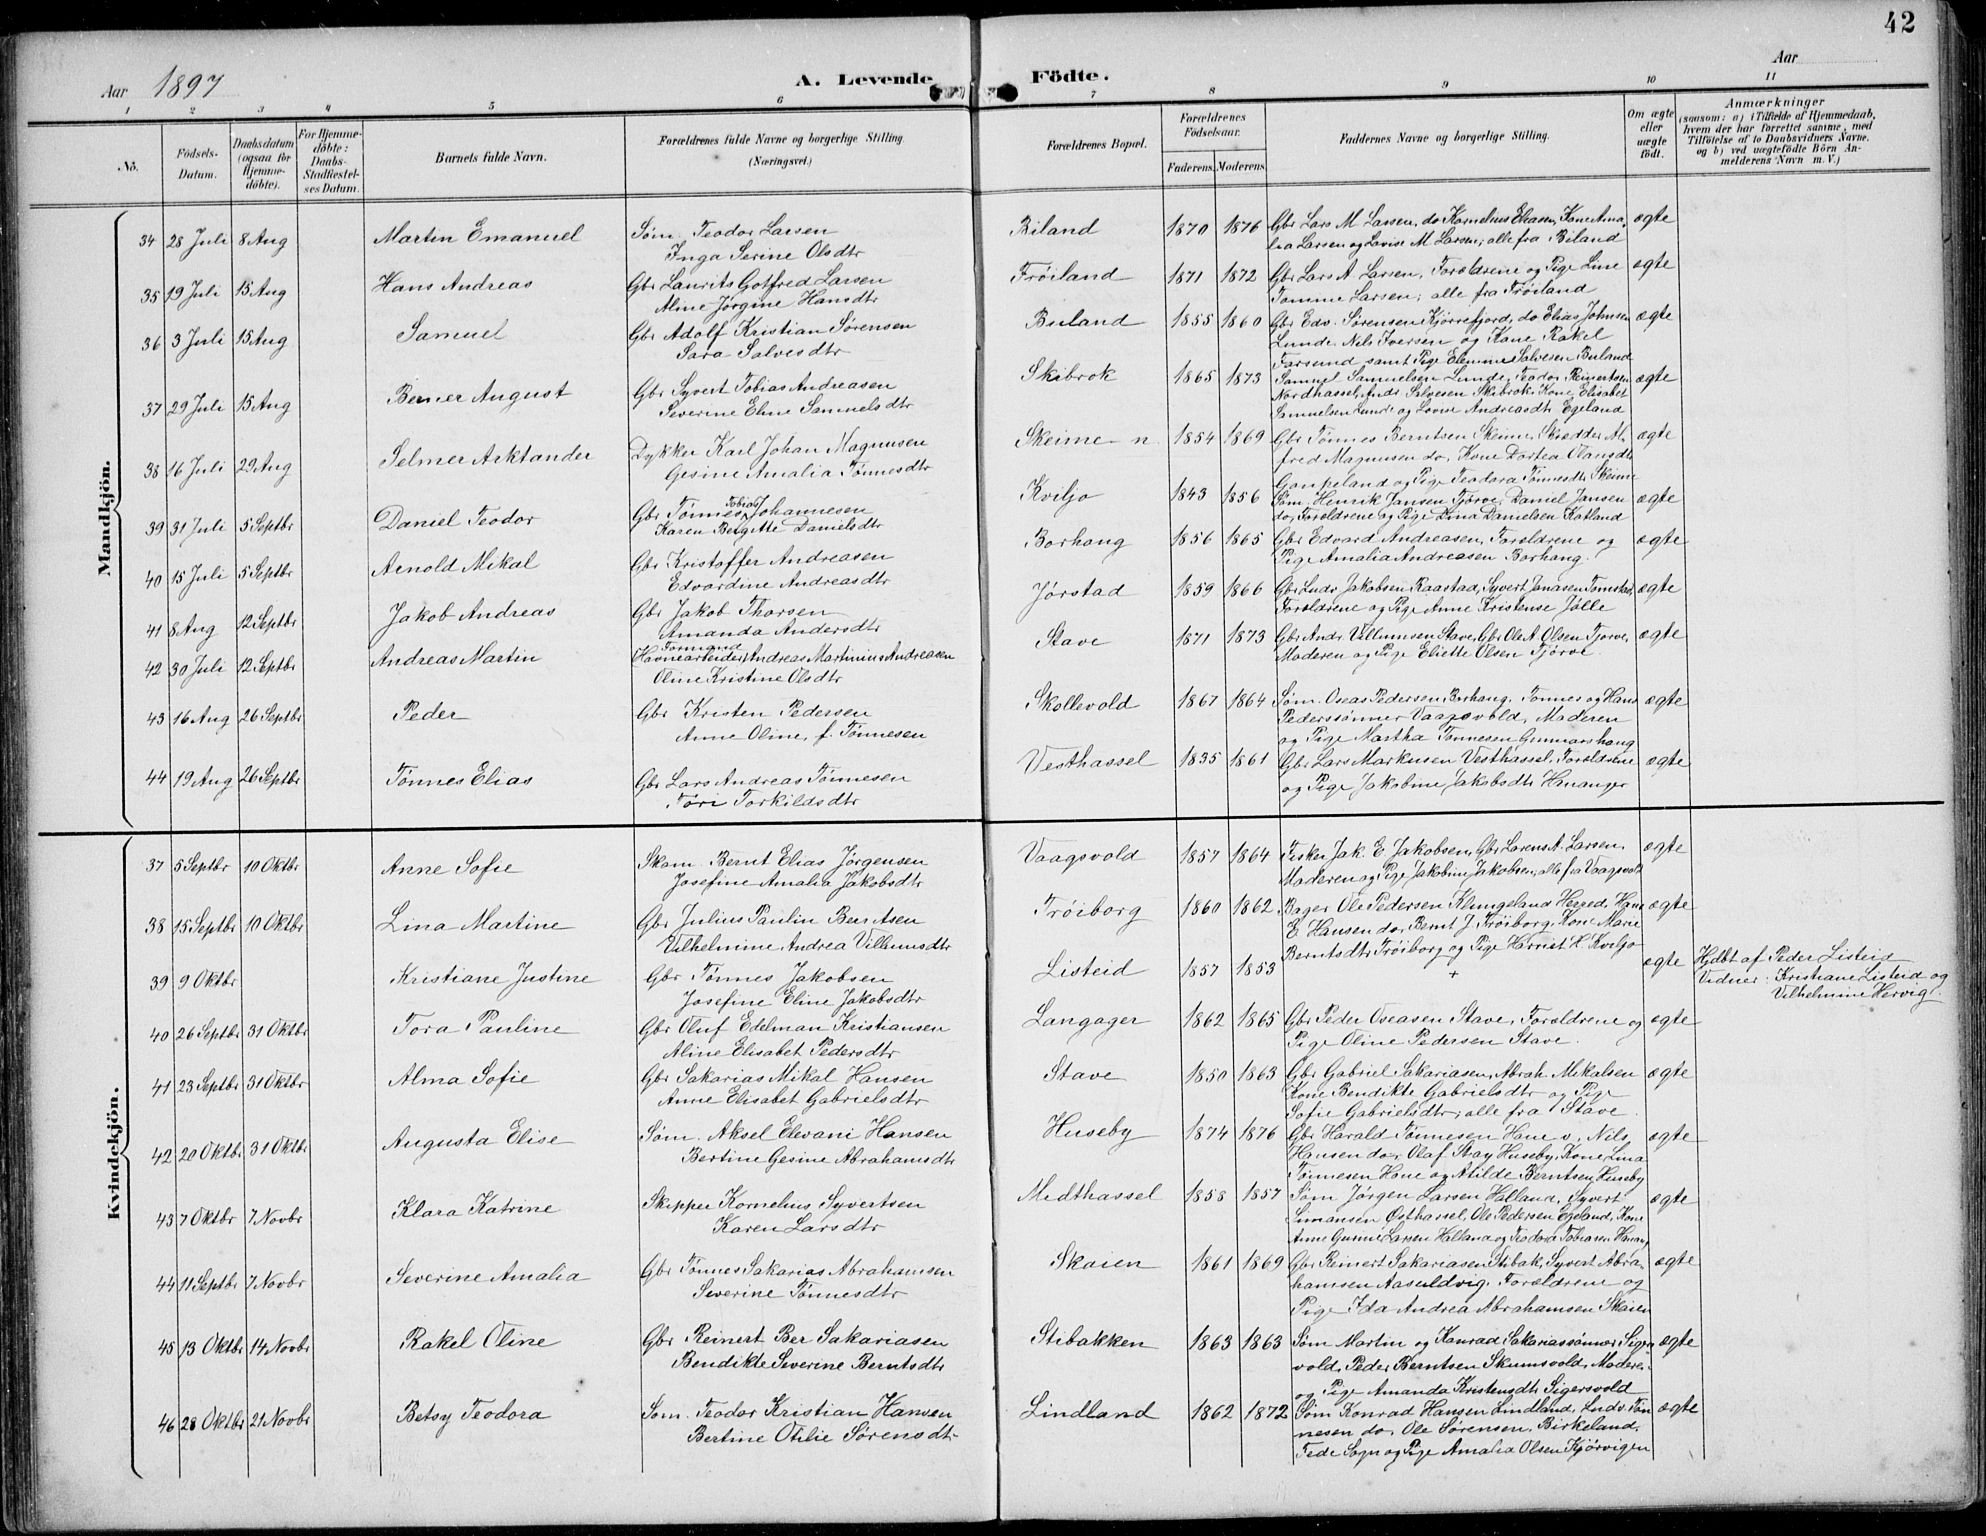 42
Aar 1897
A. Levende
Födte.
Aar
1 2 3 4 5 6 7 8 9 10 11
No.
Födsels-Datum.
Daabsdatum (ogsaa for Hjemme-døbte).
For Hjemme-döbte: Daabs-Stadfæstelses Datum.
Barnets fulde Navn.
Forældrenes fulde Navne og borgerlige Stilling (Næringsvei.)
Forældrenes Bopæl.
Forældrenes Födselsaar.
Faderens. Moderens.
Faddernes Navne og borgerlige Stilling.
Om ægte eller uægte födt.
Anmærkninger
(saasom: a) i Tilfælde af Hjemmedaab, hvem der har forrettet samme, med Tilföielse af to Daabsvidners Navne. og b) ved uægtefödte Börn Anmelderens Navn m. V.)
Mandkjön.
34 28 Juli 8 Aug Martin Emanuel Søm. Teodor Larsen Biland 1870 1876 Gbr Lars M Larsen, do Kornelius Eliasen, Kone Ama- ægte
Inga Serine Olsdtr lia Larsen og Lovise M Larsen; alle fra Biland
35 19 Juli 15 Aug Hans Andreas Gbr Laurits Gotfred Larsen Frøiland 1871 1872 Gbr Lars A. Larsen, Forældrene og Pige Line ægte
Aline Jørgine Hansdtr Tomine Larsen; alle fra Frøiland
36 3 Juli 15 Aug Samuel Gbr Adolf Kristian Sørensen Buland 1855 1860 Gbr Edv. Sørensen Kjørrefjord, do Elias Johnsen ægte
Sara Salvesdtr Lunde, Nils Iversen og Kone Rakel
Farsund samt Pige Elemine Salvesen Buland
37 29 Juli 15 Aug Berner August Gbr Syvert Tobias Andreasen Skibrok 1865 1873 Samuel Samuelsen Lunde, Teodor Reinertsen ægte
Severine Eline Samuelsdtr Nordhassel, Andr Salvesen Skibrok, Kone Elisabet
Samuelsen Lunde og Lovise Andreasdtr Egeland
38 16 Juli 29 Aug Selmer Arktander Dykker Karl Johan Magnusen Skeime n 1854 1869 Gbr Tønnes Berntsen Skeime, Skrædder Al- ægte
Gesine Amalia Tønnesdtr fred Magnusen do, Kone Dortea Olansdtr
Gaupeland og Pige Teodora Tønnesdtr Skeime
39 31 Juli 5 Septbr Daniel Teodor Gbr Tønnes Tobias Johannesen Kviljo 1843 1856 Søm. Henrik Jansen Tjørve, Daniel Jansen ægte
Karen Bergitte Danielsdtr do, Forældrene og Pige Lina Danielsen Katland
40 15 Juli 5 Septbr Arnold Mikal Gbr Kristoffer Andreasen Borhaug 1856 1865 Gbr Edvard Andreasen, Forældrene og ægte
Edvardine Andreasdtr Pige Amalia Andreasen Borhaug.
41 8 Aug 12 Septbr Jakob Andreas Gbr Jakob Thorsen Jørstad 1859 1866 Gbr Ludv Jakobsen Raastad, Syvert Jonasen Tomstad, ægte
Amanda Andersdtr Forældrene og Pige Anne Kristense Jølle
42 30 Juli 12 Septbr Andreas Martin Formand Havnearbeider, Andreas Martinius Andreasen Stave 1871 1873 Gbr Andr. Villumsen Stave, Gbr Ole A. Olsen Tjørve, ægte
Oline Kristine Olsdtr Moderen og Pige Eliette Olsen Tjørve.
43 16 Aug 26 Septbr Peder Gbr Kristen Pedersen Skollevold 1867 1864 Søm. Oseas Pedersen, Borhaug, Tønnes og Hans ægte
Anne Oline, f. Tønnesen Pederssønner Vaagsvold, Moderen
og Pige Martha Tønnesen Gunnarshaug
44 19 Aug 26 Septbr Tønnes Elias Gbr Lars Andreas Tønnesen Vesthassel 1835 1861 Gbr Lars Markusen Vesthassel, Forældrene ægte
Tøri Torkildsdtr og Pige Jakobine Jakobsdtr Hananger
Kvindekjön.
37 5 Septbr 10 Oktbr Anne Sofie Skom. Bernt Elias Jørgensen Vaagsvold 1857 1864 Fisker Jak. E Jakobsen, Gbr Lorens A. Larsen, ægte
Josefine Amalia Jakobsdtr Moderen og Pige Jakobine Jakobsen, alle fra Vaagsvold
38 15 Septbr 10 Oktbr Lina Martine Gbr Julius Paulin Berntsen Frøiborg 1860 1862 Bager Ole Pedersen Klungeland Hered, Hans ægte
Vilhelmine Andrea Villumsdtr E Hansen do, Bernt J. Frøiborg, Kone Marie
Berntsdtr Frøiborg og Pige Harriet H. Kviljo
39 9 Oktbr Kristiane Justine Gbr Tønnes Jakobsen Listeid 1857 1853 + ægte Hjdbt af Peder Listeid
Josefine Eline Jakobsdtr Vidner: Kristiane Listeid og
Vilhelmine Hervig.
40 26 Septbr 31 Oktbr Tora Pauline Gbr Oluf Edelman Kristiansen Langager 1862 1865 Gbr Peder Oseasen Stave, Forældrene og ægte
Aline Elisabet Pedersdtr Pige Oline Pedersen Stave.
41 23 Septbr 31 Oktbr Alma Sofie Gbr Sakarias Mikal Hansen Stave 1850 1863 Gbr Gabriel Sakariasen, Abrah Mikalsen ægte
Anne Elisabet Gabrielsdtr Kone Bendikte Gabrielsdtr og Pige
Sofie Gabrielsdtr, alle fra Stave.
42 20 Oktbr 31 Oktbr Augusta Elise Søm. Aksel Elevani Hansen Huseby 1874 1876 Gbr Harald Tønnesen Hane v, Nils ægte
Bertine Gesine Abrahamsdtr Hansen do, Olaf Stay Huseby, Kone Lina
Tønnesen Hane og Atilde Berntsen, Huseby
43 7 Oktbr 7 Novbr Klara Katrine Skipper Kornelius Syvertsen Midthassel 1858 1857 Søm Jørgen Larsen Halland, Syvert ægte
Karen Larsdtr Simonsen Østhassel, Ole Pedersen Egeland, Kone
Anne Gurine Larsen Halland og Teodora Tobiasen Hanan-
44 11 Septbr 7 Novbr Severine Amalia Gbr Tønnes Sakarias Abrahamsen Skaien 1861 1869 Gbr Reinert Sakariasen Stibak, Syvert Abra- ægte
Severine Tønnesdtr hamsen Aasuldvig, Forældrene og
Pige Ida Andrea Abrahamsen Skaien
45 13 Oktbr 14 Novbr Rakel Oline Gbr Reinert Ber Sakariasen Stibakken 1863 1863 Søm Martin og Konrad Sakariassønner Siger- ægte
Bendikte Severine Berntsdtr vold, Peder Berntsen Skumsvold, Modere-
og Pige Amanda Kristensdtr Sigersvold
46 28 Oktbr 21 Novbr Betsy Teodora Søm. Teodor Kristian Hansen Lindland 1862 1872 Søm Konrad Hansen Lindland, Ludv. Tøn ægte
Bertine Otilie Sørensdtr nesen do, Ole Sørensen, Birkeland,
Fede Sogn og Pige Amalia Olsen Kjørvigen